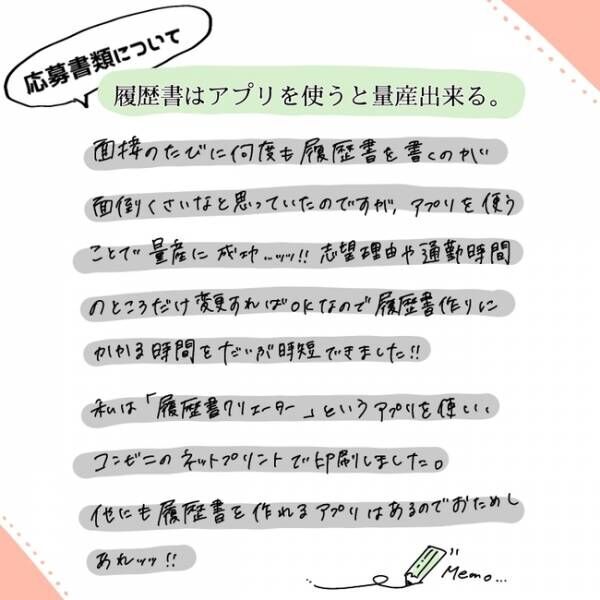 応募書類について
履歴書はアプリを使うと量産出来る。
面接のたびに何度も履歴書を書くのが
面倒くさいなと思っていたのですが、アプリを使う
ことで量産に成功..ッッ!! 志望理由や通勤時間
のところだけ変更すればOKなので履歴書作りに
かかる時間をだいぶ時短できました!!
私は「履歴書クリエーター」というアプリを使い、
コンビニのネットプリントで印刷しました。
他にも履歴書を作れるアプリはあるのでおためし
あれッッ!!
Memo...